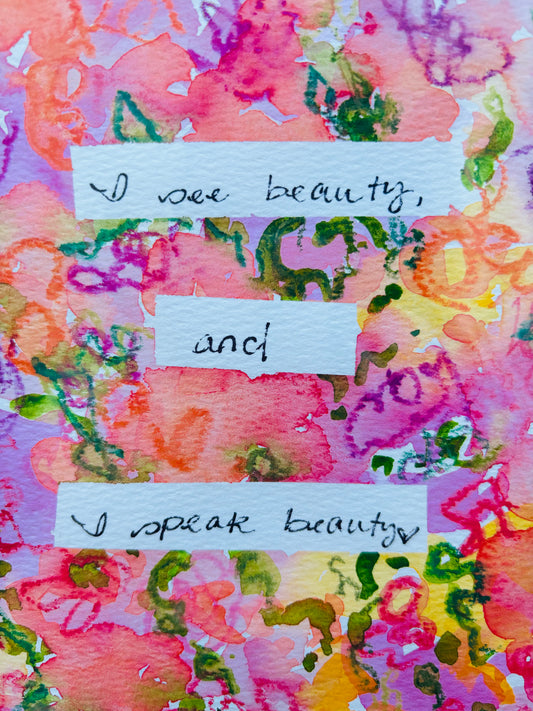 I see beauty,
and
I speak beauty♡